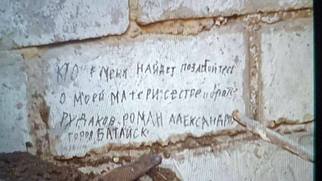 КТО МЕНЯ НАЙДЕТ ПОЗАБОТЬТЕСЬ
О МОЕЙ МАТЕРИ: СЕСТРЕ И БРАТЕ
РУДАКОВ. РОМАН АЛЕКСАНДР
ГОРОД. БАТАЙСК